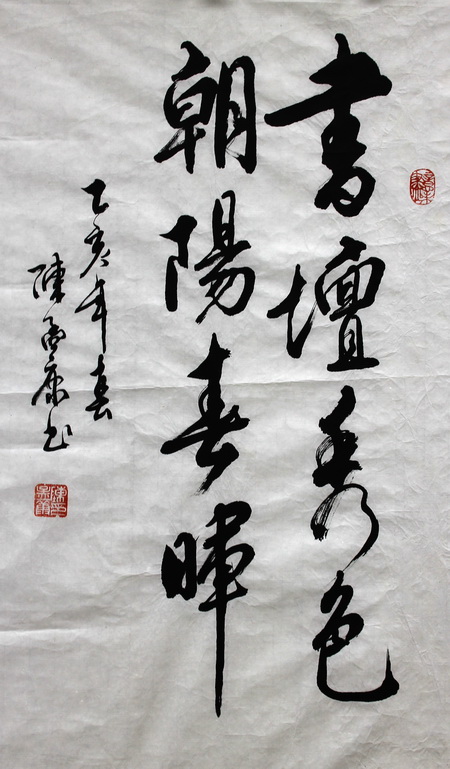 書壇秀色
朝陽春暉
乙亥年春
陳孟康书